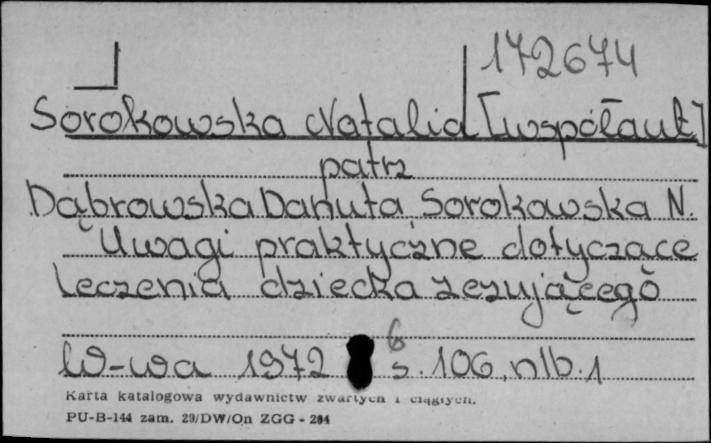 172674
Sorokowska Natalia [współaut]
patrz
Dąbrowska Danuta, Sorokowska N.
Uwagi praktyczne dotyczące
leczenia dziecka zezującego
W-wa 1972 8 s. 106, nlb. 1
Karta katalogowa wydawnictw zwartych i ciągłych.
PU-B-144 zam. 29/DW/On ZGG - 284